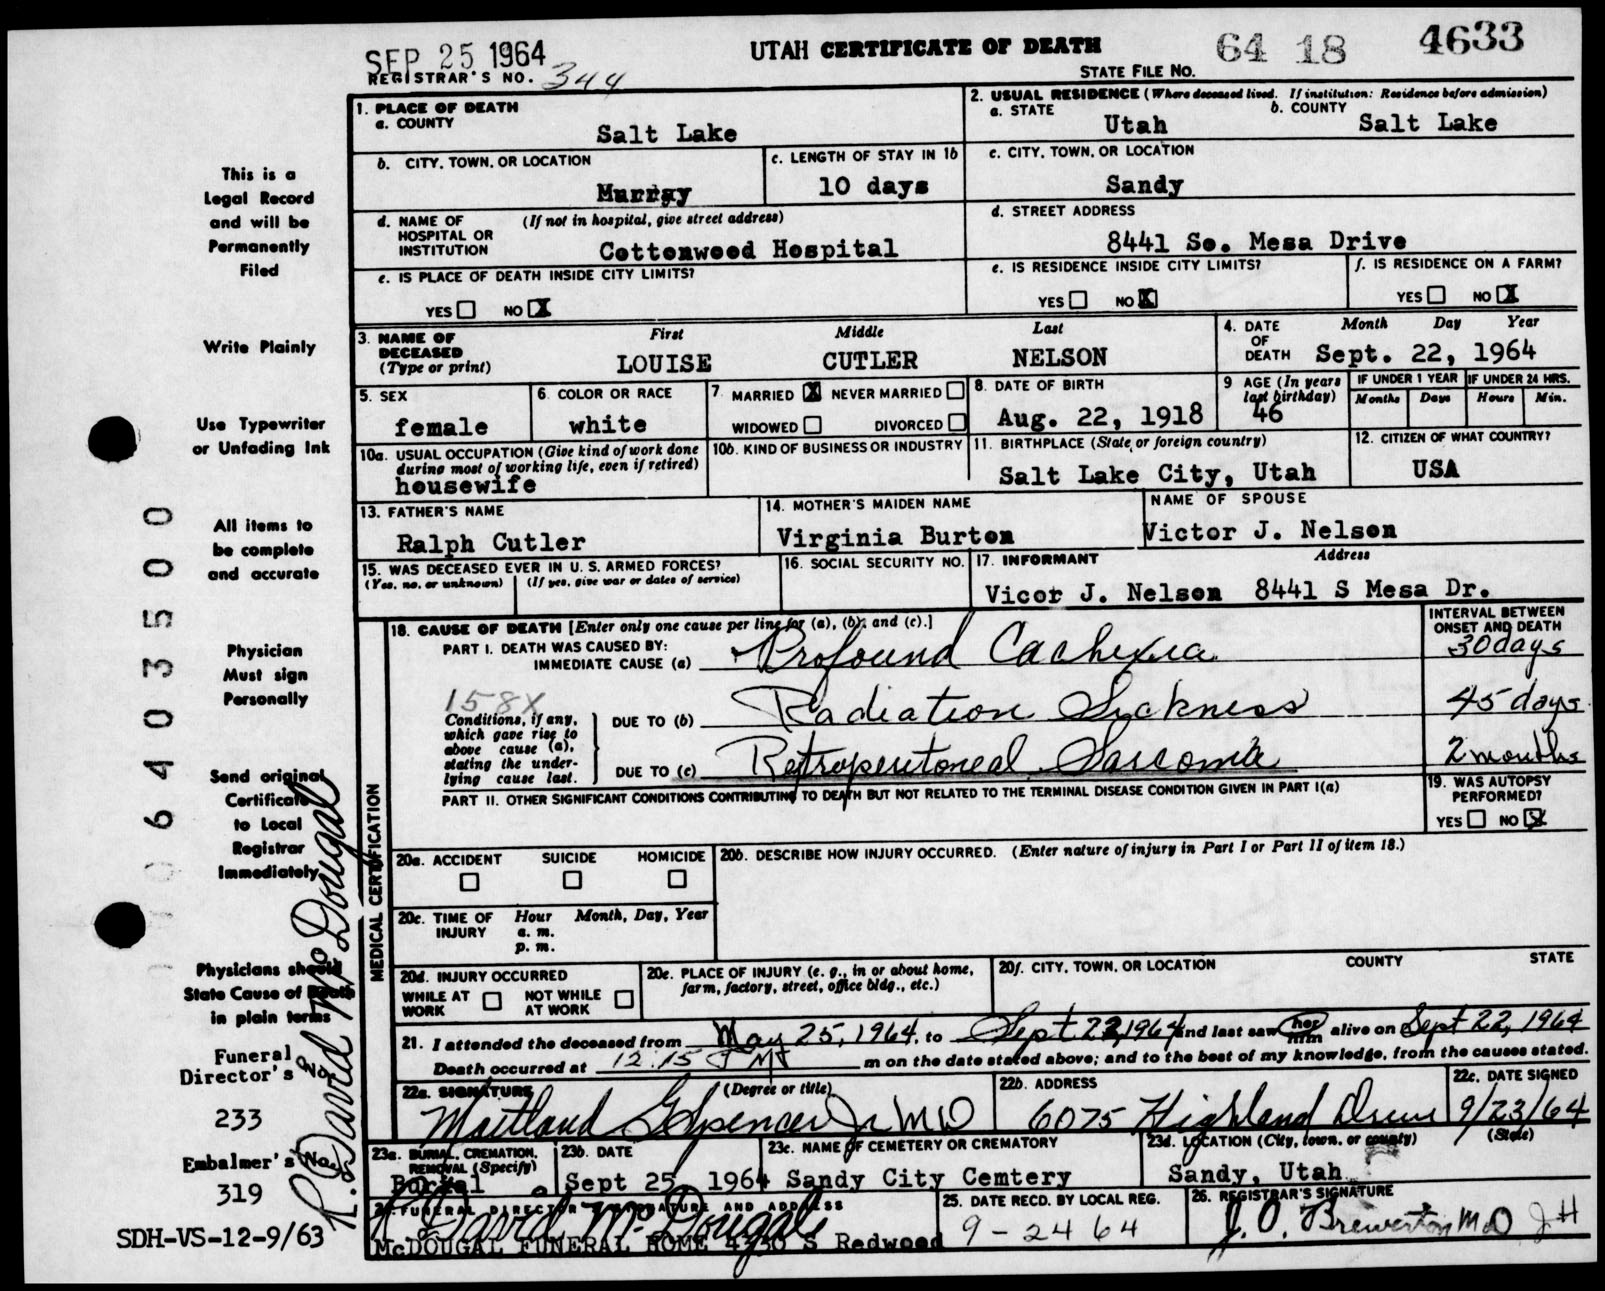 SEP 25 1964
UTAH CERTIFICATE OF DEATH
64 18 4633
REGISTRAR'S NO. 344
STATE FILE NO.
1. PLACE OF DEATH
a. COUNTY
Salt Lake
2. USUAL RESIDENCE (Where deceased lived. If institution: Residence before admission)
a. STATE
Utah
b. COUNTY
Salt Lake
b. CITY, TOWN, OR LOCATION
Murray
c. LENGTH OF STAY IN 1b
10 days
c. CITY, TOWN, OR LOCATION
Sandy
d. NAME OF HOSPITAL OR INSTITUTION (If not in hospital, give street address)
Cottonwood Hospital
d. STREET ADDRESS
8441 So. Mesa Drive
e. IS PLACE OF DEATH INSIDE CITY LIMITS?
YES NO X
e. IS RESIDENCE INSIDE CITY LIMITS?
YES NO X
f. IS RESIDENCE ON A FARM?
YES NO X
3. NAME OF DECEASED (Type or print)
First Middle Last
LOUISE CUTLER NELSON
4. DATE OF DEATH
Month Day Year
Sept. 22, 1964
5. SEX
female
6. COLOR OR RACE
white
7. MARRIED X NEVER MARRIED
WIDOWED DIVORCED
8. DATE OF BIRTH
Aug. 22, 1918
9 AGE (In years last birthday)
46
IF UNDER 1 YEAR
Months Days
IF UNDER 24 HRS.
Hours Min.
10a. USUAL OCCUPATION (Give kind of work done during most of working life, even if retired)
housewife
10b. KIND OF BUSINESS OR INDUSTRY
11. BIRTHPLACE (State or foreign country)
Salt Lake City, Utah
12. CITIZEN OF WHAT COUNTRY?
USA
13. FATHER'S NAME
Ralph Cutler
14. MOTHER'S MAIDEN NAME
Virginia Burton
NAME OF SPOUSE
Victor J. Nelson
15. WAS DECEASED EVER IN U. S. ARMED FORCES?
(Yes, no, or unknown) (If yes, give war or dates of service)
16. SOCIAL SECURITY NO.
17. INFORMANT Address
Vicor J. Nelson 8441 S Mesa Dr.
MEDICAL CERTIFICATION
18. CAUSE OF DEATH [Enter only one cause per line for (a), (b), and (c).]
INTERVAL BETWEEN ONSET AND DEATH
PART I. DEATH WAS CAUSED BY:
IMMEDIATE CAUSE (a) Profound Cachexia 30 days
158X
Conditions, if any, which gave rise to above cause (a), stating the underlying cause last.
DUE TO (b) Radiation Sickness 45 days
DUE TO (c) Retroperitoneal Sarcoma 2 months
PART II. OTHER SIGNIFICANT CONDITIONS CONTRIBUTING TO DEATH BUT NOT RELATED TO THE TERMINAL DISEASE CONDITION GIVEN IN PART I(a)
19. WAS AUTOPSY PERFORMED?
YES NO X
20a. ACCIDENT SUICIDE HOMICIDE
20b. DESCRIBE HOW INJURY OCCURRED. (Enter nature of injury in Part I or Part II of item 18.)
20c. TIME OF INJURY
Hour Month, Day, Year
a. m.
p. m.
20d. INJURY OCCURRED
WHILE AT WORK NOT WHILE AT WORK
20e. PLACE OF INJURY (e. g., in or about home, farm, factory, street, office bldg., etc.)
20f. CITY, TOWN, OR LOCATION COUNTY STATE
21. I attended the deceased from May 25, 1964, to Sept 22, 1964 and last saw her him alive on Sept 22, 1964
Death occurred at 12:15 m on the date stated above; and to the best of my knowledge, from the causes stated.
22a. SIGNATURE (Degree or title)
Maitland G Spencer Jr MD
22b. ADDRESS
6075 Highland Drive
22c. DATE SIGNED
9/23/64
23a. BURIAL, CREMATION, REMOVAL (Specify)
23b. DATE
Sept 25, 1964
23c. NAME OF CEMETERY OR CREMATORY
Sandy City Cemtery
23d. LOCATION (City, town, or county) (State)
Sandy, Utah
24. FUNERAL DIRECTOR'S SIGNATURE AND ADDRESS
R David McDougal
McDOUGAL FUNERAL HOME 4330 S Redwood
25. DATE RECD. BY LOCAL REG.
9-24 64
26. REGISTRAR'S SIGNATURE
J. O. Brewerton MD JH
This is a
Legal Record
and will be
Permanently
Filed
Write Plainly
Use Typewriter
or Unfading Ink
All items to
be complete
and accurate
Physician
Must sign
Personally
Send original
Certificate
to Local
Registrar
Immediately
Physicians should
State Cause of Death
in plain terms
Funeral
Director's No.
233
Embalmer's No.
319
SDH-VS-12-9/63
R. David McDougal
006403500